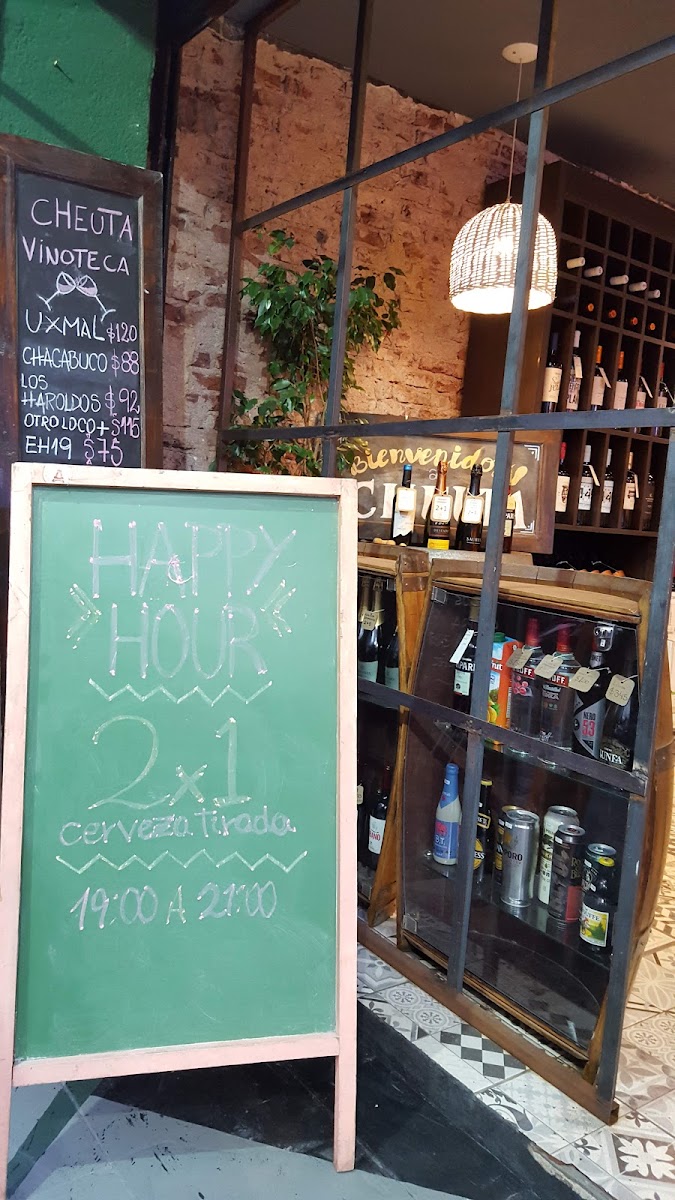 CHEUTA
VINOTECA
UXMAL $120
CHACABUCO $88
LOS
HAROLDOS $92
OTRO LOCO + $115
EH19 $75
HAPPY
HOUR
2x1
cerveza Tirada
19:00 A 21:00
Bienvenidos
a
CHEUTA
2x1
NERO
53